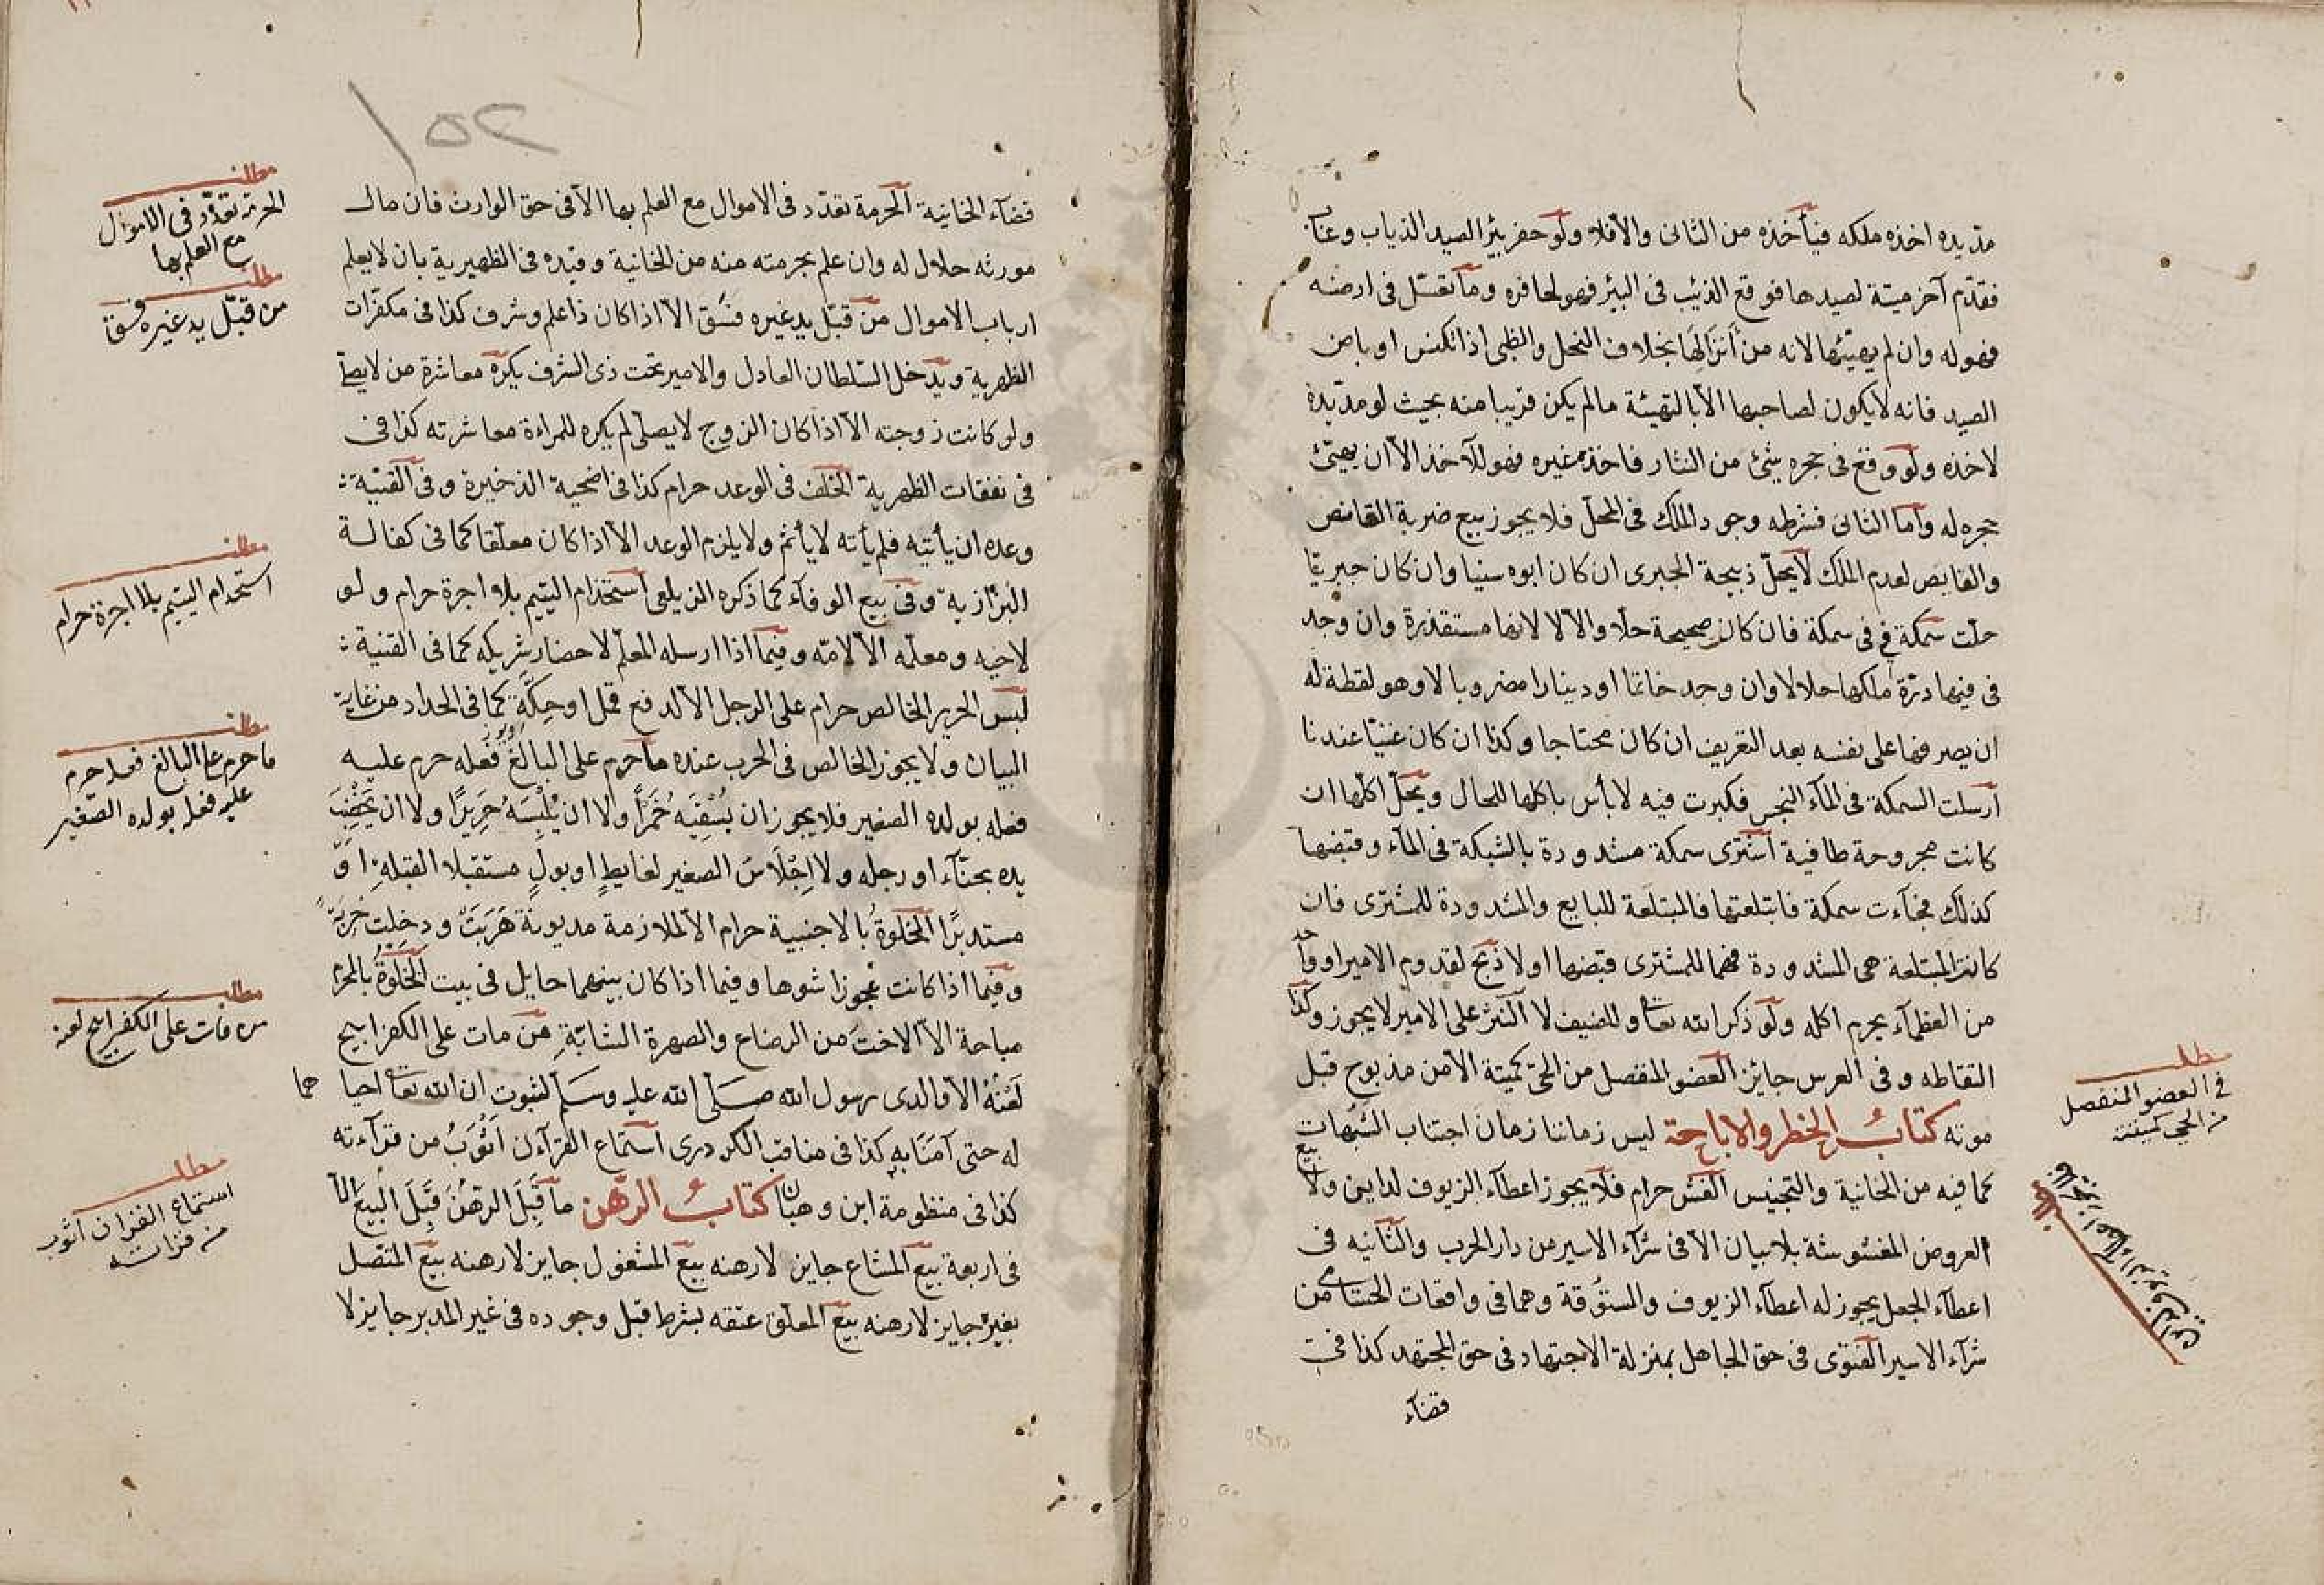 مد يده اخذه ملكه فيأخذه من الثانى والا فلا ولو حفر بئرا لصيد الذياب وغاب
فقدم آخر ميتة لصيدها فوقع الذئب فى البئر فهو لحافره وما تعسّل فى ارضه
فهو له وان لم يهيئها لانه من أنزالها بخلاف النحل والظبى اذا تكنس او باض
الصيد فانه لا يكون لصاحبها الا بالتهيئة مالم يكن قريبا منه بحيث لو مد يده
لاخذه ولو وقع فى حجره شئ من النثار فاخذه غيره فهو للآخذ الا ان يهيئ
حجره له وأما الثانى فشرطه وجود الملك فى المحل فلا يجوز بيع ضربة القانص
والغايص لعدم الملك لا يحل ذبيحة الجبرى ان كان ابوه سنيا وان كان جبريا
حلت سمكة فى سمكة فان كان صحيحة حلا والا لا لانها مستقذرة وان وجد
فى فيها درّة ملكها حلالا وان وجد خاتما او دينارا مضروبا لا وهو لقطة له
ان يصرفها على نفسه بعد التعريف ان كان محتاجا وكذا ان كان غنيا عندنا
أرسلت السمكة فى المآء النجس فكبرت فيه لا بأس باكلها للحال ويحل اكلها ان
كانت مجروحة طافية اشترى سمكة مشدودة بالشبكة فى المآء وقبضها
كذلك فجآءت سمكة فابتلعتها فالمبتلعة للبايع والمشدودة للمشترى فان
كانت المبتلعة هى المشدودة فهما للمشترى قبضها اولا ذبح لقدوم الامير او واحد
من العظمآء يحرم اكله ولو ذكر الله تعا وللضيف لا النثر على الامير لا يجوز وكذا
التقاطه وفى العرس جايز العضو المنفصل من الحى كميتة الا من مذبوح قبل
موته كتاب الحظر والاباحة ليس زماننا زمان اجتناب الشبهات
كما فيه من الخانية والتجنيس الغش حرام فلا يجوز اعطآء الزيوف لداين ولا بيع
العروض المغشوشة بلا بيان الا فى شرآء الاسير من دار الحرب والثانيه فى
اعطآء الجعل يجوز له اعطآء الزيوف والستوقة وهما فى واقعات الحسامى من
شرآء الاسير الفتوى فى حق الجاهل بمنزلة الاجتهاد فى حق المجتهد كذا فى
قضآء
مطلب
فى العضو المنفصل
من الحى كميتة
١٥٢
قضآء الخانية الحرمة تعدّد فى الاموال مع العلم بها الا فى حق الوارث فان مال
مورثه حلال له وان علم بحرمته منه من الخانية وقيده فى الظهيرية بان لا يعلم
ارباب الاموال من قبّل يد غيره فسق الا اذا كان ذا علم وشرف كذا فى مكفرات
الظهرية ويدخل السلطان العادل والامير تحت ذى الشرف يكره معاشرة من لا يصلى
ولو كانت زوجته الا اذا كان الزوج لا يصلى لم يكره للمراءة معاشرته كذا فى
فى نفقات الظهرية الخلف فى الوعد حرام كذا فى اضحية الذخيرة وفى القنية
وعده ان يأتيه فلم يأته لا يأثم ولا يلزم الوعد الا اذا كان معلقا كما فى كفالة
البزازية وفى بيع الوفآء كما ذكره الزيلعى استخدام اليتيم بلا اجرة حرام ولو
لاخيه ومعلمه الا لامّه وفيما اذا ارسله المعلم لاحضار شريكه كما فى القنية
لبس الحرير الخالص حرام على الرجل الا لدفع قمل او حكّة كما فى الحداد من غاية
البيان ولا يجوز الخالص فى الحرب عنده ما حرم على البالغ فعله حرم عليه
فعله بولده الصغير فلا يجوز ان يسقيه خمرا ولا ان يلبسه حريرا ولا ان يخضب
يده بحنآء او رجله ولا اجلاس الصغير لغايط او بول مستقبلا القبلة او
مستدبرا الخلوة بالاجنبية حرام الا لملازمة مديونة هربت ودخلت خربة
وفيما اذا كانت عجوزا شوها وفيما اذا كان بينهما حايل فى بيت الخلوة بالمحرم
مباحة الا الاخت من الرضاع والصهرة الشابّة من مات على الكفر ابيح
لعنه الا والدى رسول الله صلى الله عليه وسلم لثبوت ان الله تعا احياهما
له حتى آمنا به كذا فى مناقب الكردرى استماع القرآءن اثوب من قرآءته
كذا فى منظومة ابن وهبان كتاب الرهن ما قبل الرهن قبل البيع الا
فى اربعة بيع المشاع جايز لا رهنه بيع المشغول جايز لا رهنه بيع المتصل
بغيره جايز لا رهنه بيع المعلق عتقه بشرط قبل وجوده فى غير المدبر جايز لا
مطلب
الحرمة تعدد فى الاموال
مع العلم بها
مطلب
من قبّل يد غيره فسق
مطلب
استخدام اليتيم بلا اجرة حرام
مطلب
ما حرم على البالغ فعله حرم
عليه فعله بولده الصغير
مطلب
من مات على الكفر ابيح لعنه
مطلب
استماع القران اثوب
من قراته